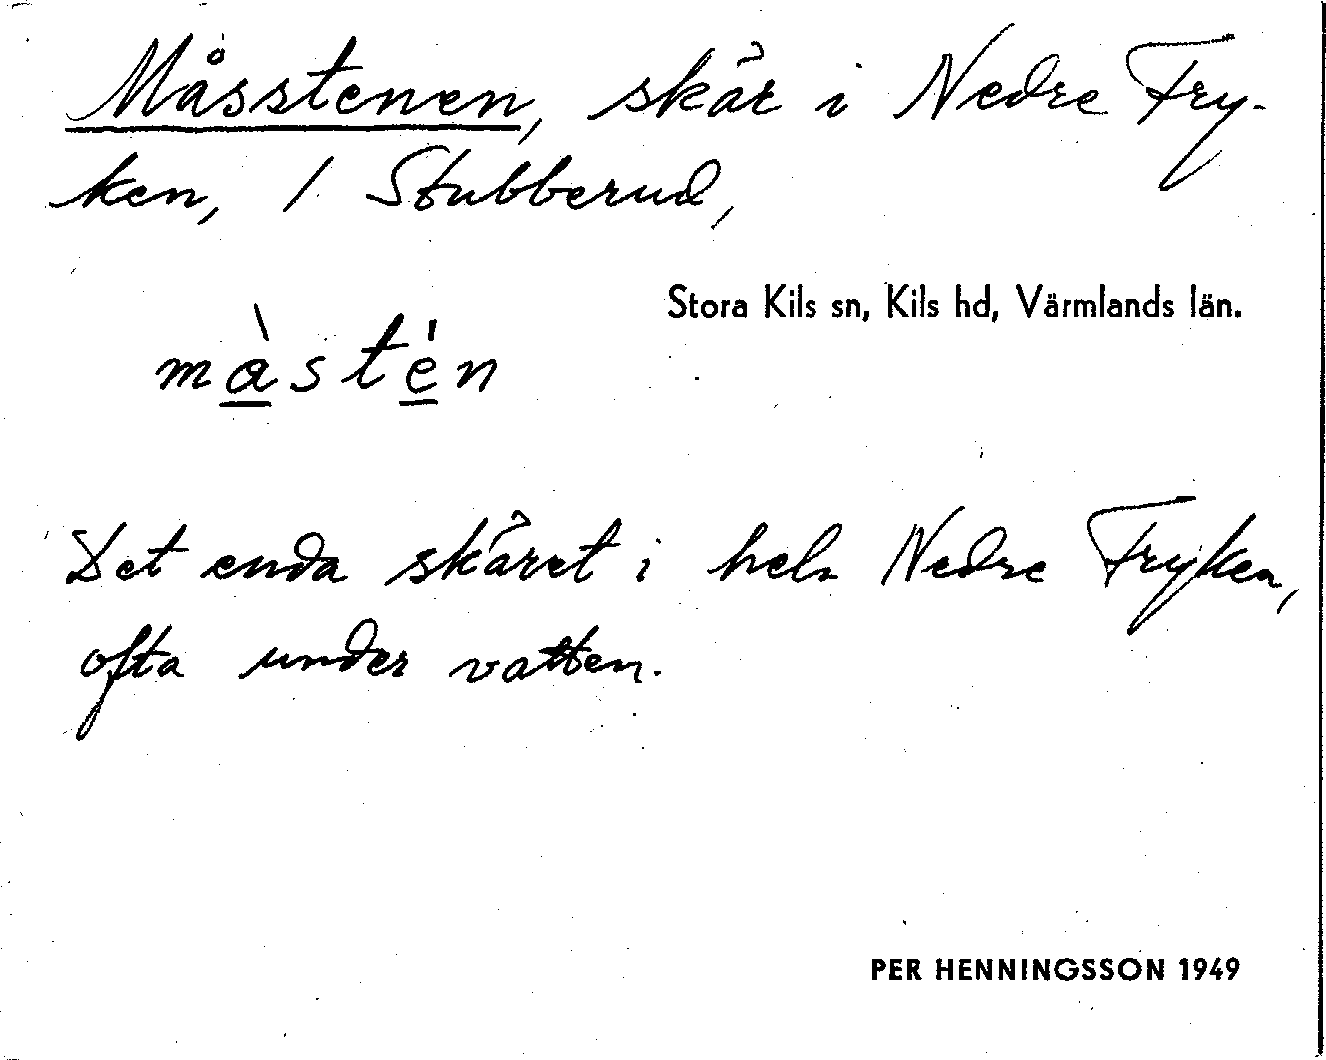 Måsstenen, skär i Nedre Fry-
ken, / Stubberud,
Stora Kils sn, Kils hd, Värmlands län.
màste̍n
Det enda skäret i hela Nedre Fryken,
ofta under vatten.
PER HENNINGSSON 1949